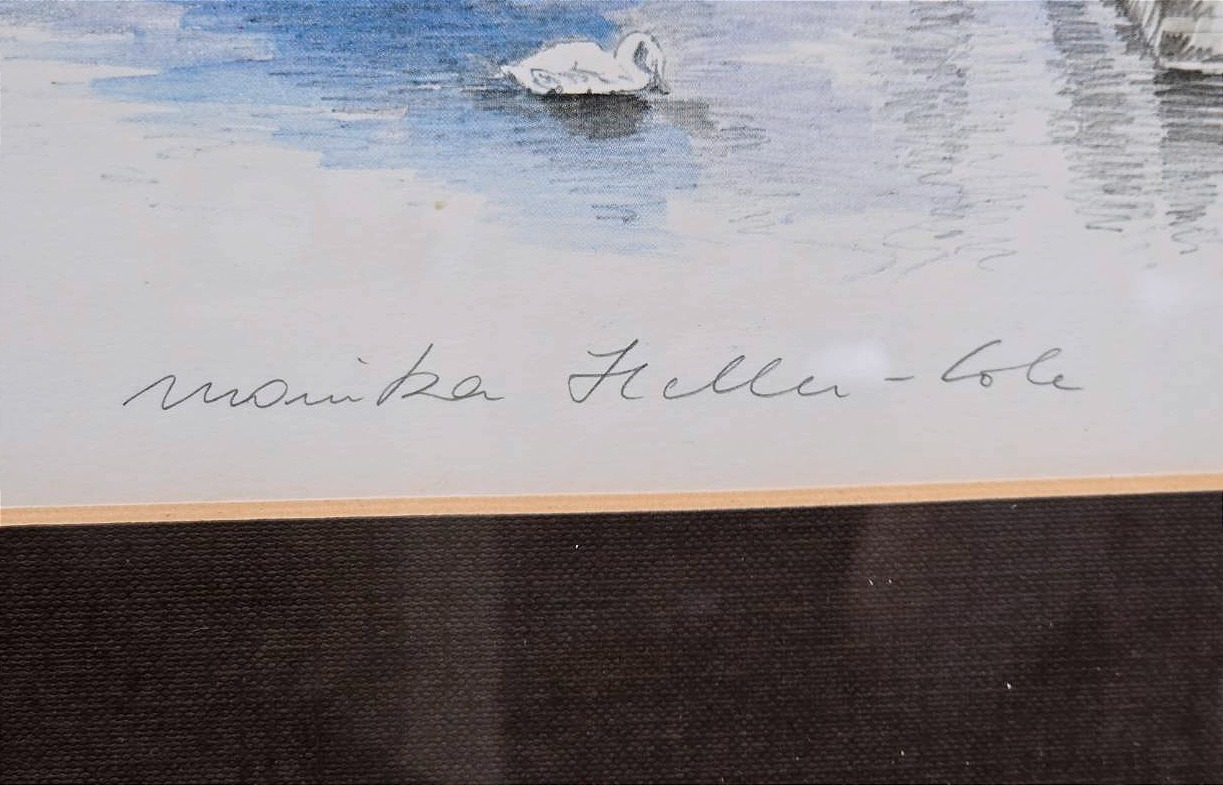 Monika Heller-Cole